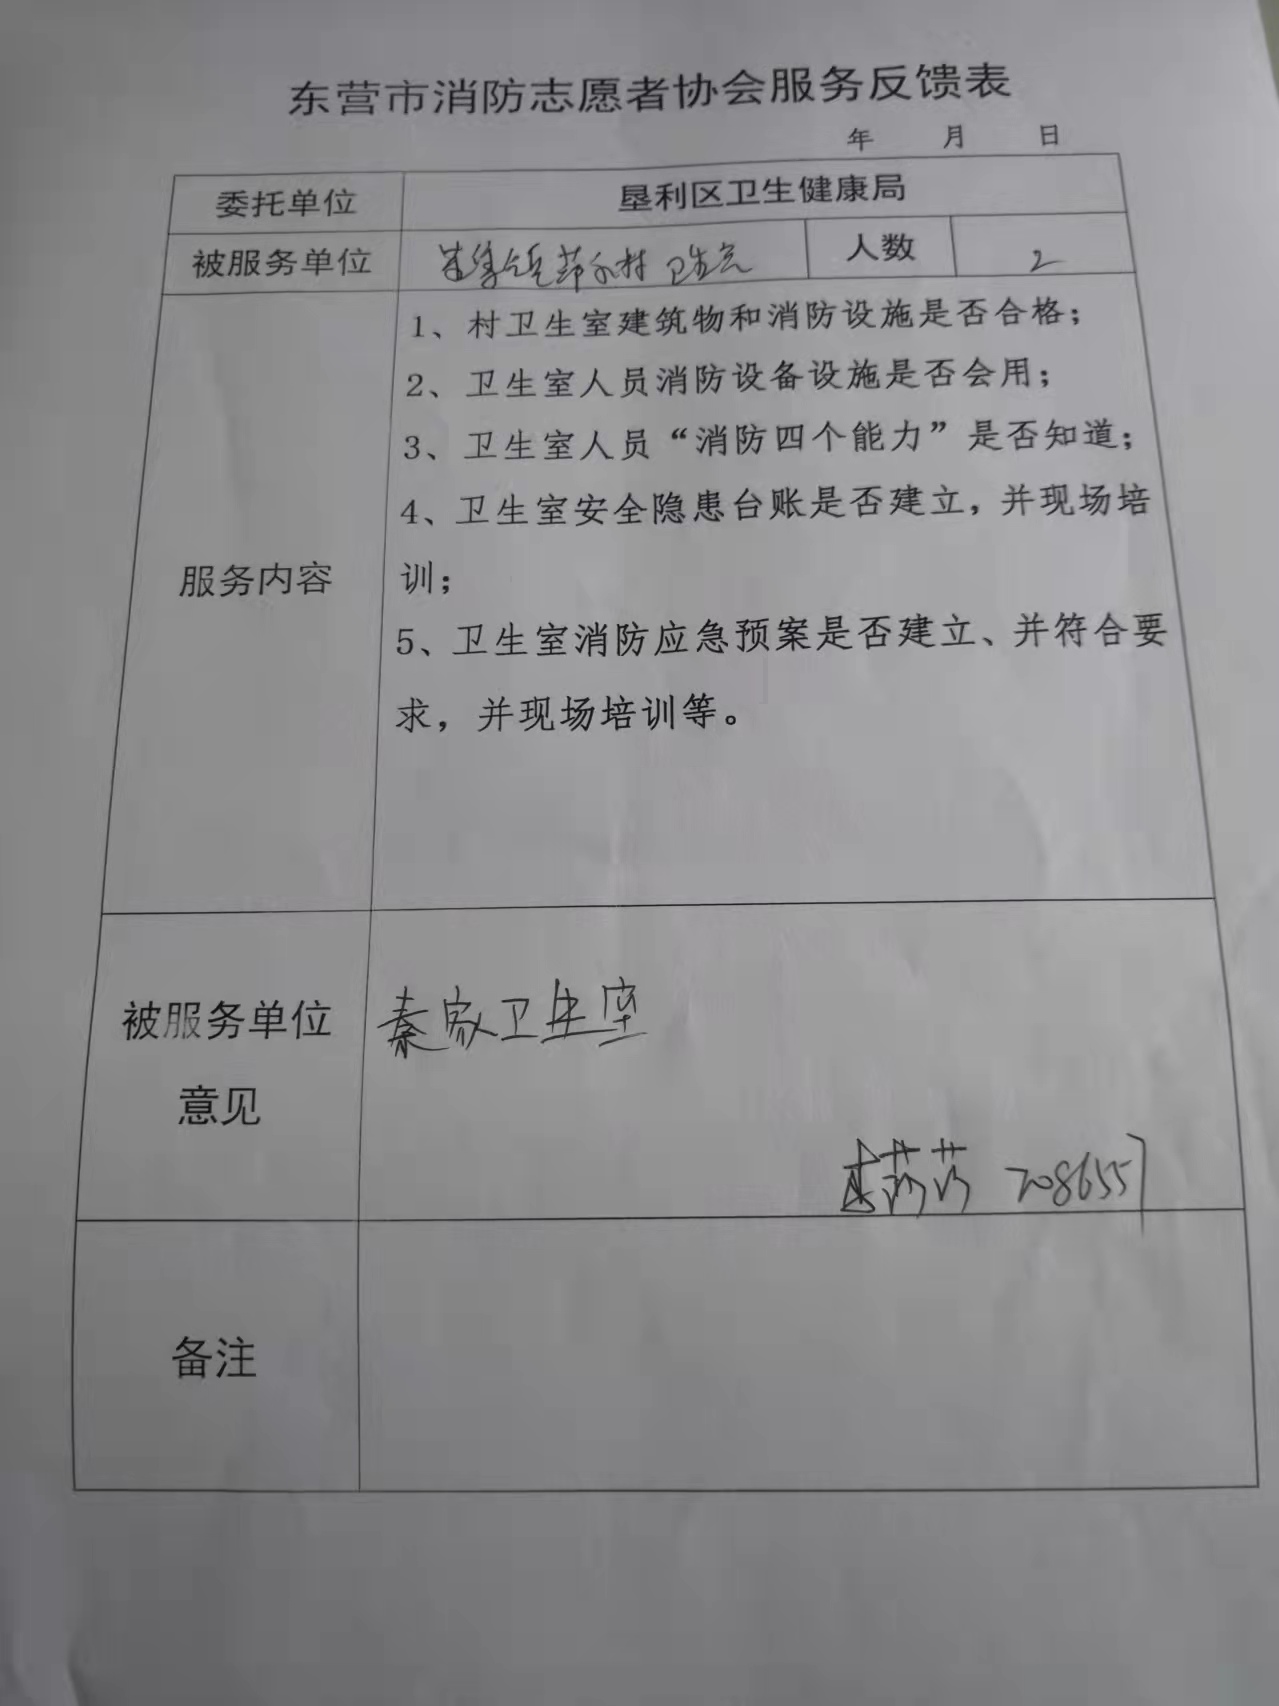 东营市消防志愿者协会服务反馈表
年 月 日
委托单位 垦利区卫生健康局
被服务单位 村卫生室 人数 2
服务内容
1、村卫生室建筑物和消防设施是否合格；
2、卫生室人员消防设备设施是否会用；
3、卫生室人员“消防四个能力”是否知道；
4、卫生室安全隐患台账是否建立，并现场培
训；
5、卫生室消防应急预案是否建立、并符合要
求，并现场培训等。
被服务单位
意见
秦家卫生室
7086557
备注